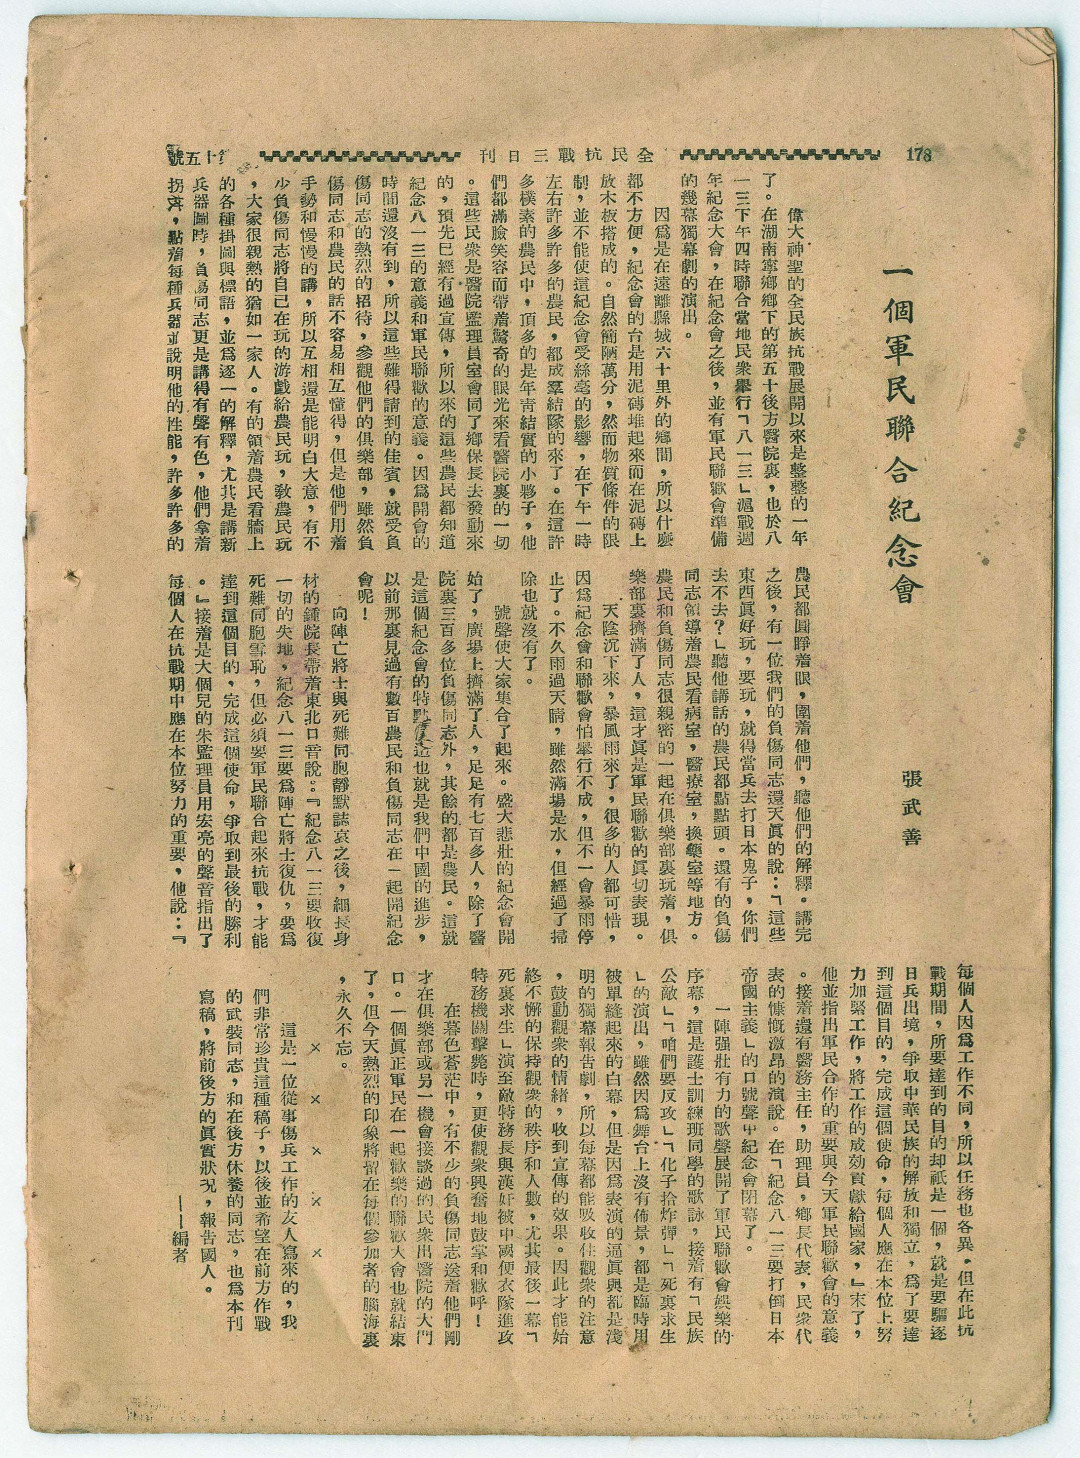 178
全民抗戰三日刊
十五號
一個軍民聯合紀念會
張武善
偉大神聖的全民族抗戰展開以來是整整的一年
了。在湖南寧鄉鄉下的第五十後方醫院裏，也於八
一三下午四時聯合當地民衆舉行「八一三」滬戰週
年紀念大會，在紀念會之後，並有軍民聯歡會準備
的幾幕獨幕劇的演出。
因爲是在遠離縣城六十里外的鄉間，所以什麽
都不方便，紀念會的台是用泥磚堆起來而在泥磚上
放木板搭成的。自然簡陋萬分，然而物質條件的限
制，並不能使這紀念會受絲毫的影響，在下午一時
左右許多許多的農民，都成羣結隊的來了。在這許
多樸素的農民中，頂多的是年青結實的小夥子，他
們都滿臉笑容而帶着驚奇的眼光來看醫院裏的一切
。這些民衆是醫院監理員室會同了鄉保長去發動來
的，預先已經有過宣傳，所以來的這些農民都知道
紀念八一三的意義和軍民聯歡的意義。因爲開會的
時間還沒有到，所以這些難得請到的佳賓，就受負
傷同志的熱烈的招待，參觀他們的俱樂部，雖然負
傷同志和農民的話不容易相互懂得，但是他們用着
手勢和慢慢的講，所以互相還是能明白大意，有不
少負傷同志將自己在玩的游戲給農民玩，敎農民玩
，大家很親熱的猶如一家人。有的領着農民看牆上
的各種掛圖與標語，並爲逐一的解釋，尤其是講新
兵器圖時，負傷同志更是講得有聲有色，他們拿着
拐杖，點着每種兵器並說明他的性能，許多許多的
農民都圓睜着眼，圍着他們，聽他們的解釋。講完
之後，有一位我們的負傷同志還天眞的說：「這些
東西眞好玩，要玩，就得當兵去打日本鬼子，你們
去不去？」聽他講話的農民都點點頭。還有的負傷
同志領導着農民看病室，醫療室，換藥室等地方。
農民和負傷同志很親密的一起在俱樂部裏玩着，俱
樂部裏擠滿了人，這才眞是軍民聯歡的眞切表現。
天陰沉下來，暴風雨來了，很多的人都可惜，
因爲紀念會和聯歡會怕舉行不成，但不一會暴雨停
止了。不久雨過天晴，雖然滿場是水，但經過了掃
除也就沒有了。
號聲使大家集合了起來。盛大悲壯的紀念會開
始了，廣場上擠滿了人，足足有七百多人，除了醫
院裏三百多位負傷同志外，其餘的都是農民。這就
是這個紀念會的特點，這也就是我們中國的進步，
以前那裏見過有數百農民和負傷同志在一起開紀念
會呢！
向陣亡將士與死難同胞靜默誌哀之後，細長身
材的鍾院長帶着東北口音說：『紀念八一三要收復
一切的失地，紀念八一三要爲陣亡將士復仇，要爲
死難同胞雪恥，但必須要軍民聯合起來抗戰，才能
達到這個目的，完成這個使命，爭取到最後的勝利
。』接着是大個兒的朱監理員用宏亮的聲音指出了
每個人在抗戰期中應在本位努力的重要，他說：『
每個人因爲工作不同，所以任務也各異。但在此抗
戰期間，所要達到的目的却祇是一個，就是要驅逐
日兵出境，爭取中華民族的解放和獨立，爲了要達
到這個目的，完成這個使命，每個人應在本位上努
力加緊工作，將工作的成効貢獻給國家，』末了，
他並指出軍民合作的重要與今天軍民聯歡會的意義
。接着還有醫務主任，助理員，鄉長代表，民衆代
表的慷慨激昂的演說。在「紀念八一三要打倒日本
帝國主義」的口號聲中紀念會閉幕了。
一陣强壯有力的歌聲展開了軍民聯歡會娛樂的
序幕，這是護士訓練班同學的歌詠，接着有「民族
公敵」「咱們要反攻」「化子拾炸彈」「死裏求生
」的演出，雖然因爲舞台上沒有佈景，都是臨時用
被單縫起來的白幕，但是因爲表演的逼眞與都是淺
明的獨幕報告劇，所以每幕都能吸收住觀衆的注意
，鼓動觀衆的情緒，收到宣傳的效果。因此才能始
終不懈的保持觀衆的秩序和人數，尤其最後一幕「
死裏求生」演至敵特務長與漢奸被中國便衣隊進攻
特務機關擊斃時，更使觀衆興奮地鼓掌和歡呼！
在暮色蒼茫中，有不少的負傷同志送着他們剛
才在俱樂部或另一機會接談過的民衆出醫院的大門
口。一個眞正軍民在一起歡樂的聯歡大會也就結束
了，但今天熱烈的印象將留在每個參加者的腦海裏
，永久不忘。
×　×　×　×　×
這是一位從事傷兵工作的友人寫來的，我
們非常珍貴這種稿子，以後並希望在前方作戰
的武裝同志，和在後方休養的同志，也爲本刊
寫稿，將前後方的眞實狀況，報告國人。
——編者